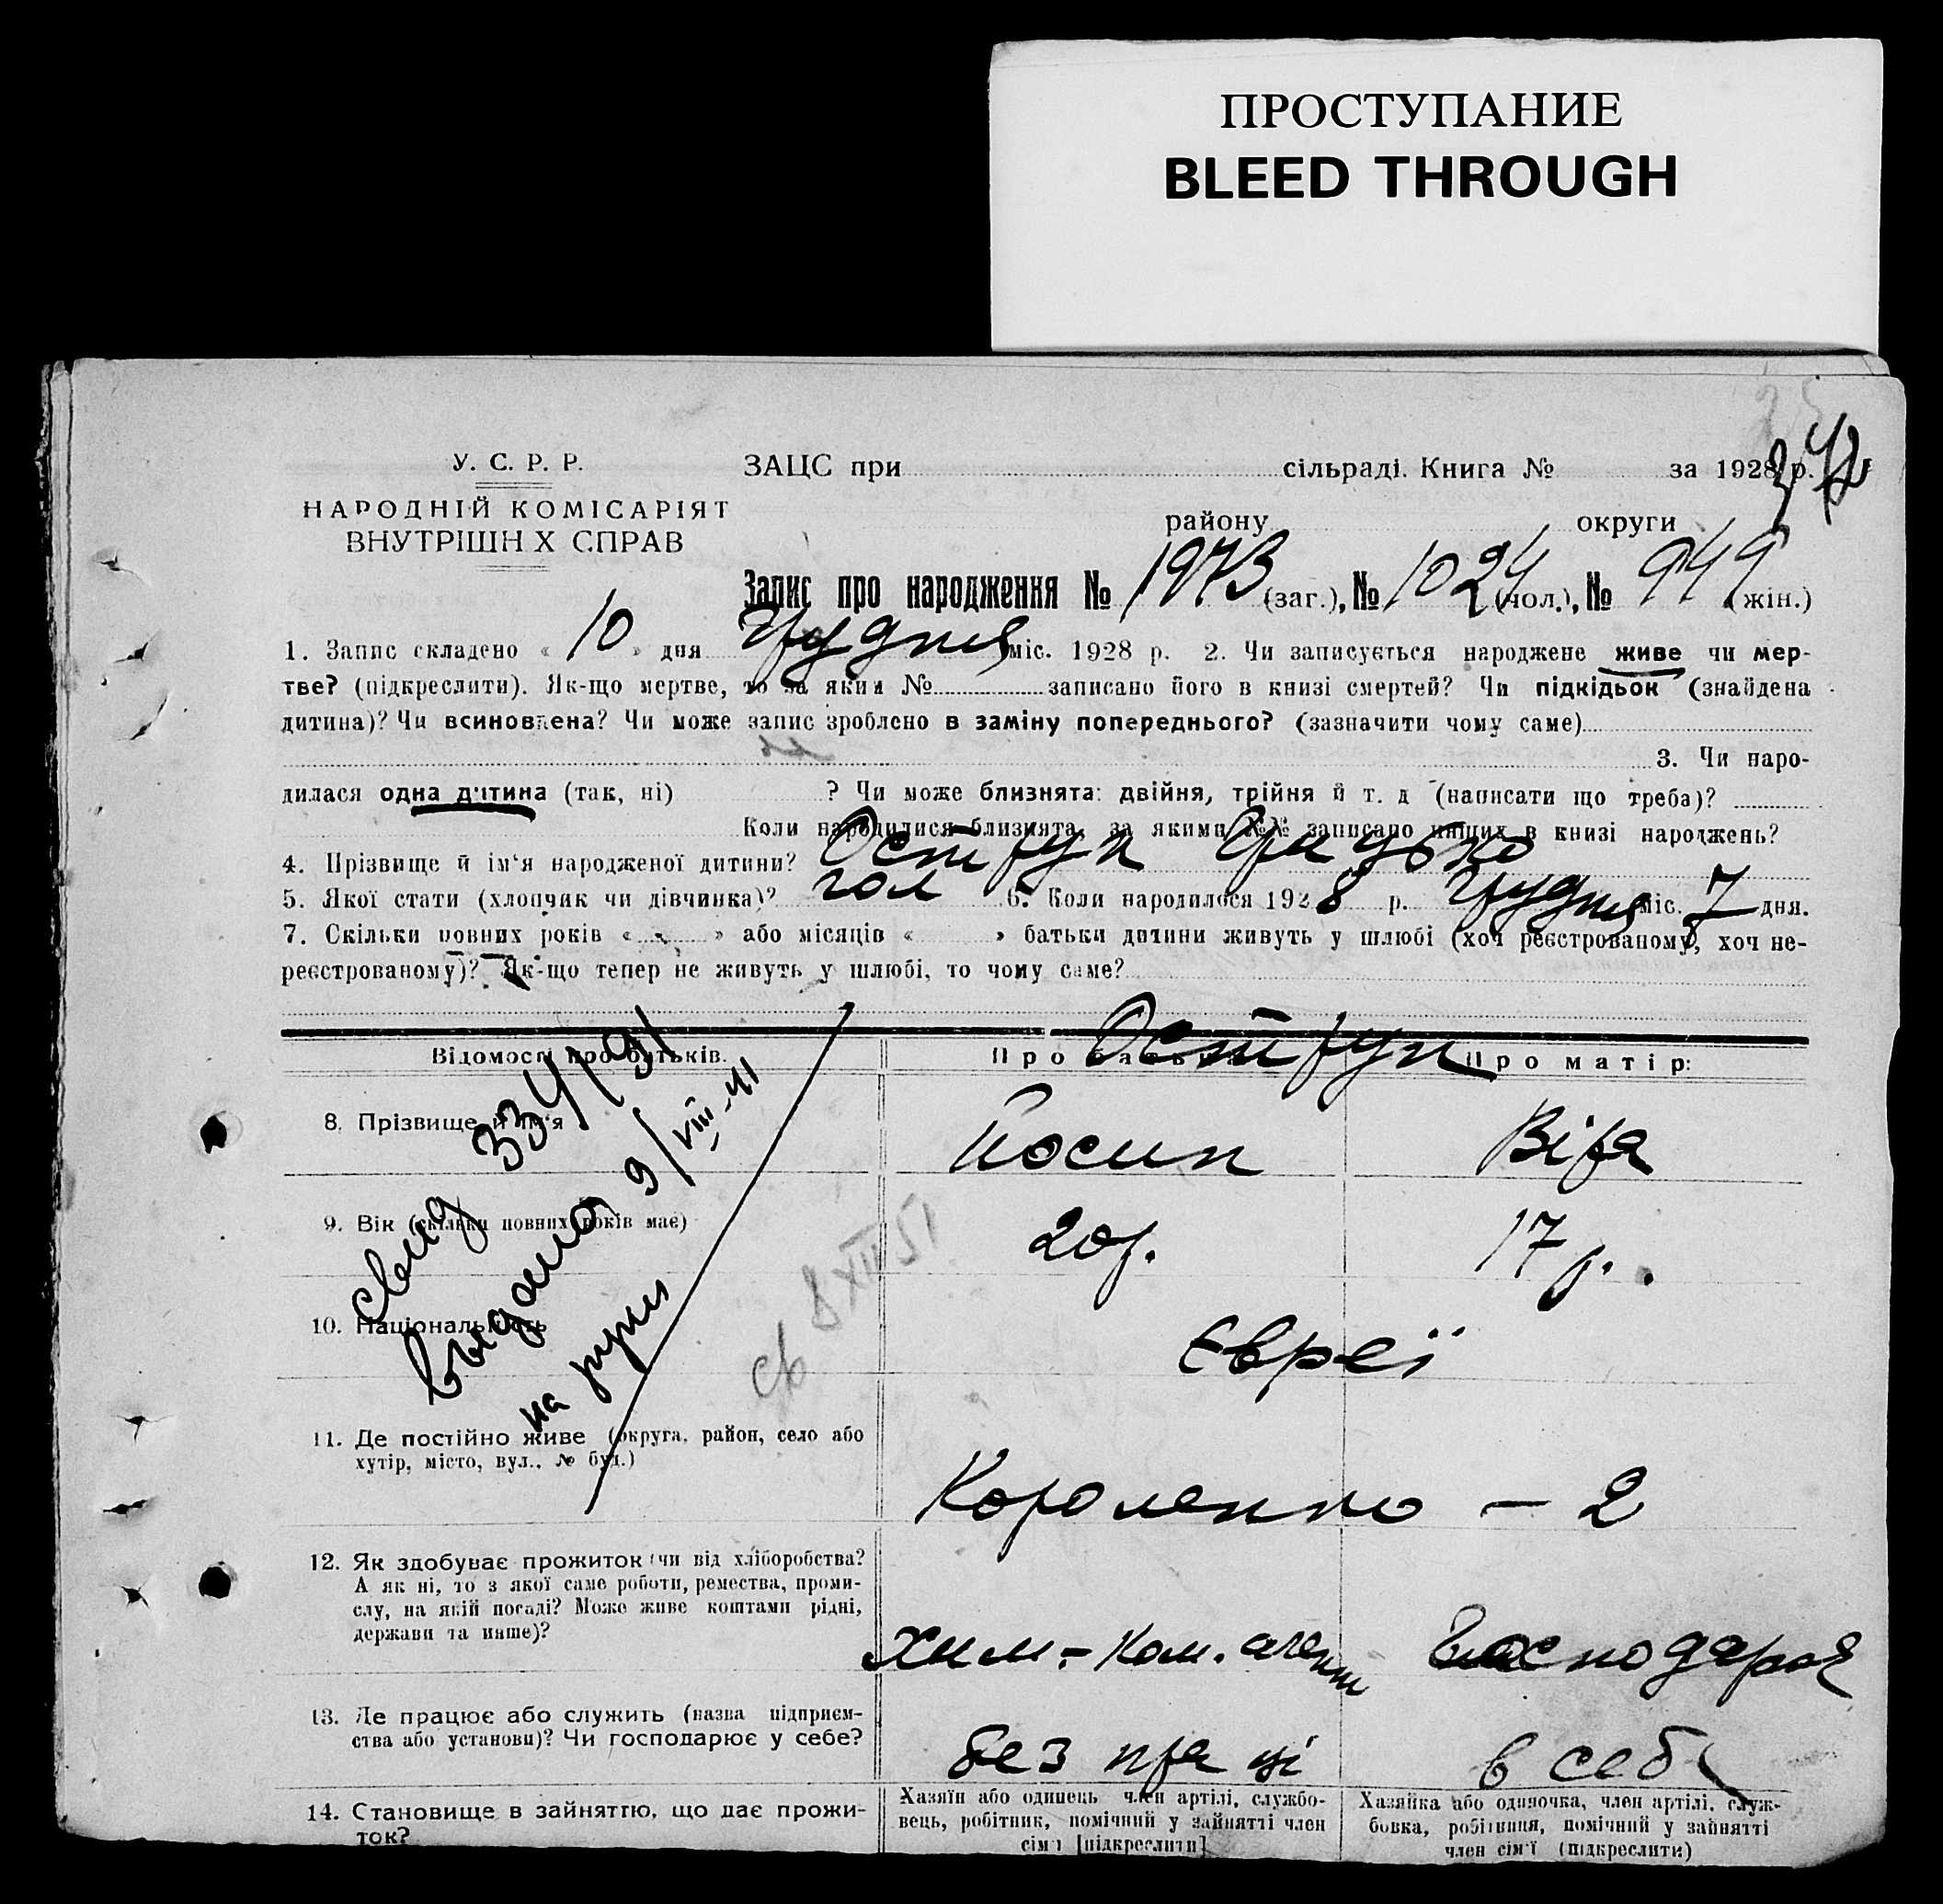 ПРОСТУПАНИЕ
BLEED THROUGH
У. С. Р. Р.
НАРОДНІЙ КОМІСАРІЯТ
ВНУТРІШН Х СПРАВ
ЗАЦС при сільраді. Книга № за 1928 р.
району округи
Запис про народження № 1973 (заг.), № 1024 (чол.), № 949 (жін.)
1. Запис складено « 10 » дня Грудня міс. 1928 р. 2. Чи записується народжене живе чи мер-
тве? (підкреслити). Як-що мертве, то за яким № записано його в книзі смертей? Чи підкідьок (знайдена
дитина)? Чи всиновлена? Чи може запис зроблено в заміну попереднього? (зазначити чому саме)
3. Чи наро-
дилася одна дитина (так, ні) ? Чи може близнята: двійня, трійня й т. д (написати що треба)?
Коли народилися близнята, за якими №№ записано инших в книзі народжень?
4. Прізвище й ім‘я народженої дитини? Острун
5. Якої стати (хлопчик чи дівчинка)? чол 6. Коли народилося 1928 р. Грудня міс. 7 дня.
7. Скільки повних років « » або місяців « » батьки дитини живуть у шлюбі (хоч реєстрованому, хоч не-
реєстрованому)? Як-що тепер не живуть у шлюбі, то чому саме?
Відомості про батьків. Про батька Про матір:
Острун
8. Прізвище й ім‘я Йосип Віра
9. Вік (скільки повних років має) 20р. 17 р.
10. Національність Євреї
11. Де постійно живе (округа, район, село або
хутір, місто, вул., № буд.)
Короленко – 2
12. Як здобуває прожиток (чи від хліборобства?
А як ні, то з якої саме роботи, ремества, проми-
слу, на якій посаді? Може живе коштами рідні,
держави та инше)?
Хим-ком. агент Господарює
13. Де працює або служить (назва підприєм-
ства або установи)? Чи господарює у себе?
без праці в себе
14. Становище в зайняттю, що дає прожи-
ток?
Хазяїн або одинець член артілі, службо-
вець, робітник, помічний у зайнятті член
сім‘ї [підкреслити]
Хазяйка або одиночка, член артілі, служ-
бовка, робітниця, помічний у зайнятті
член сім‘ї (підкреслити)
свид 334/91
выдано 9/VIII-41
на руки